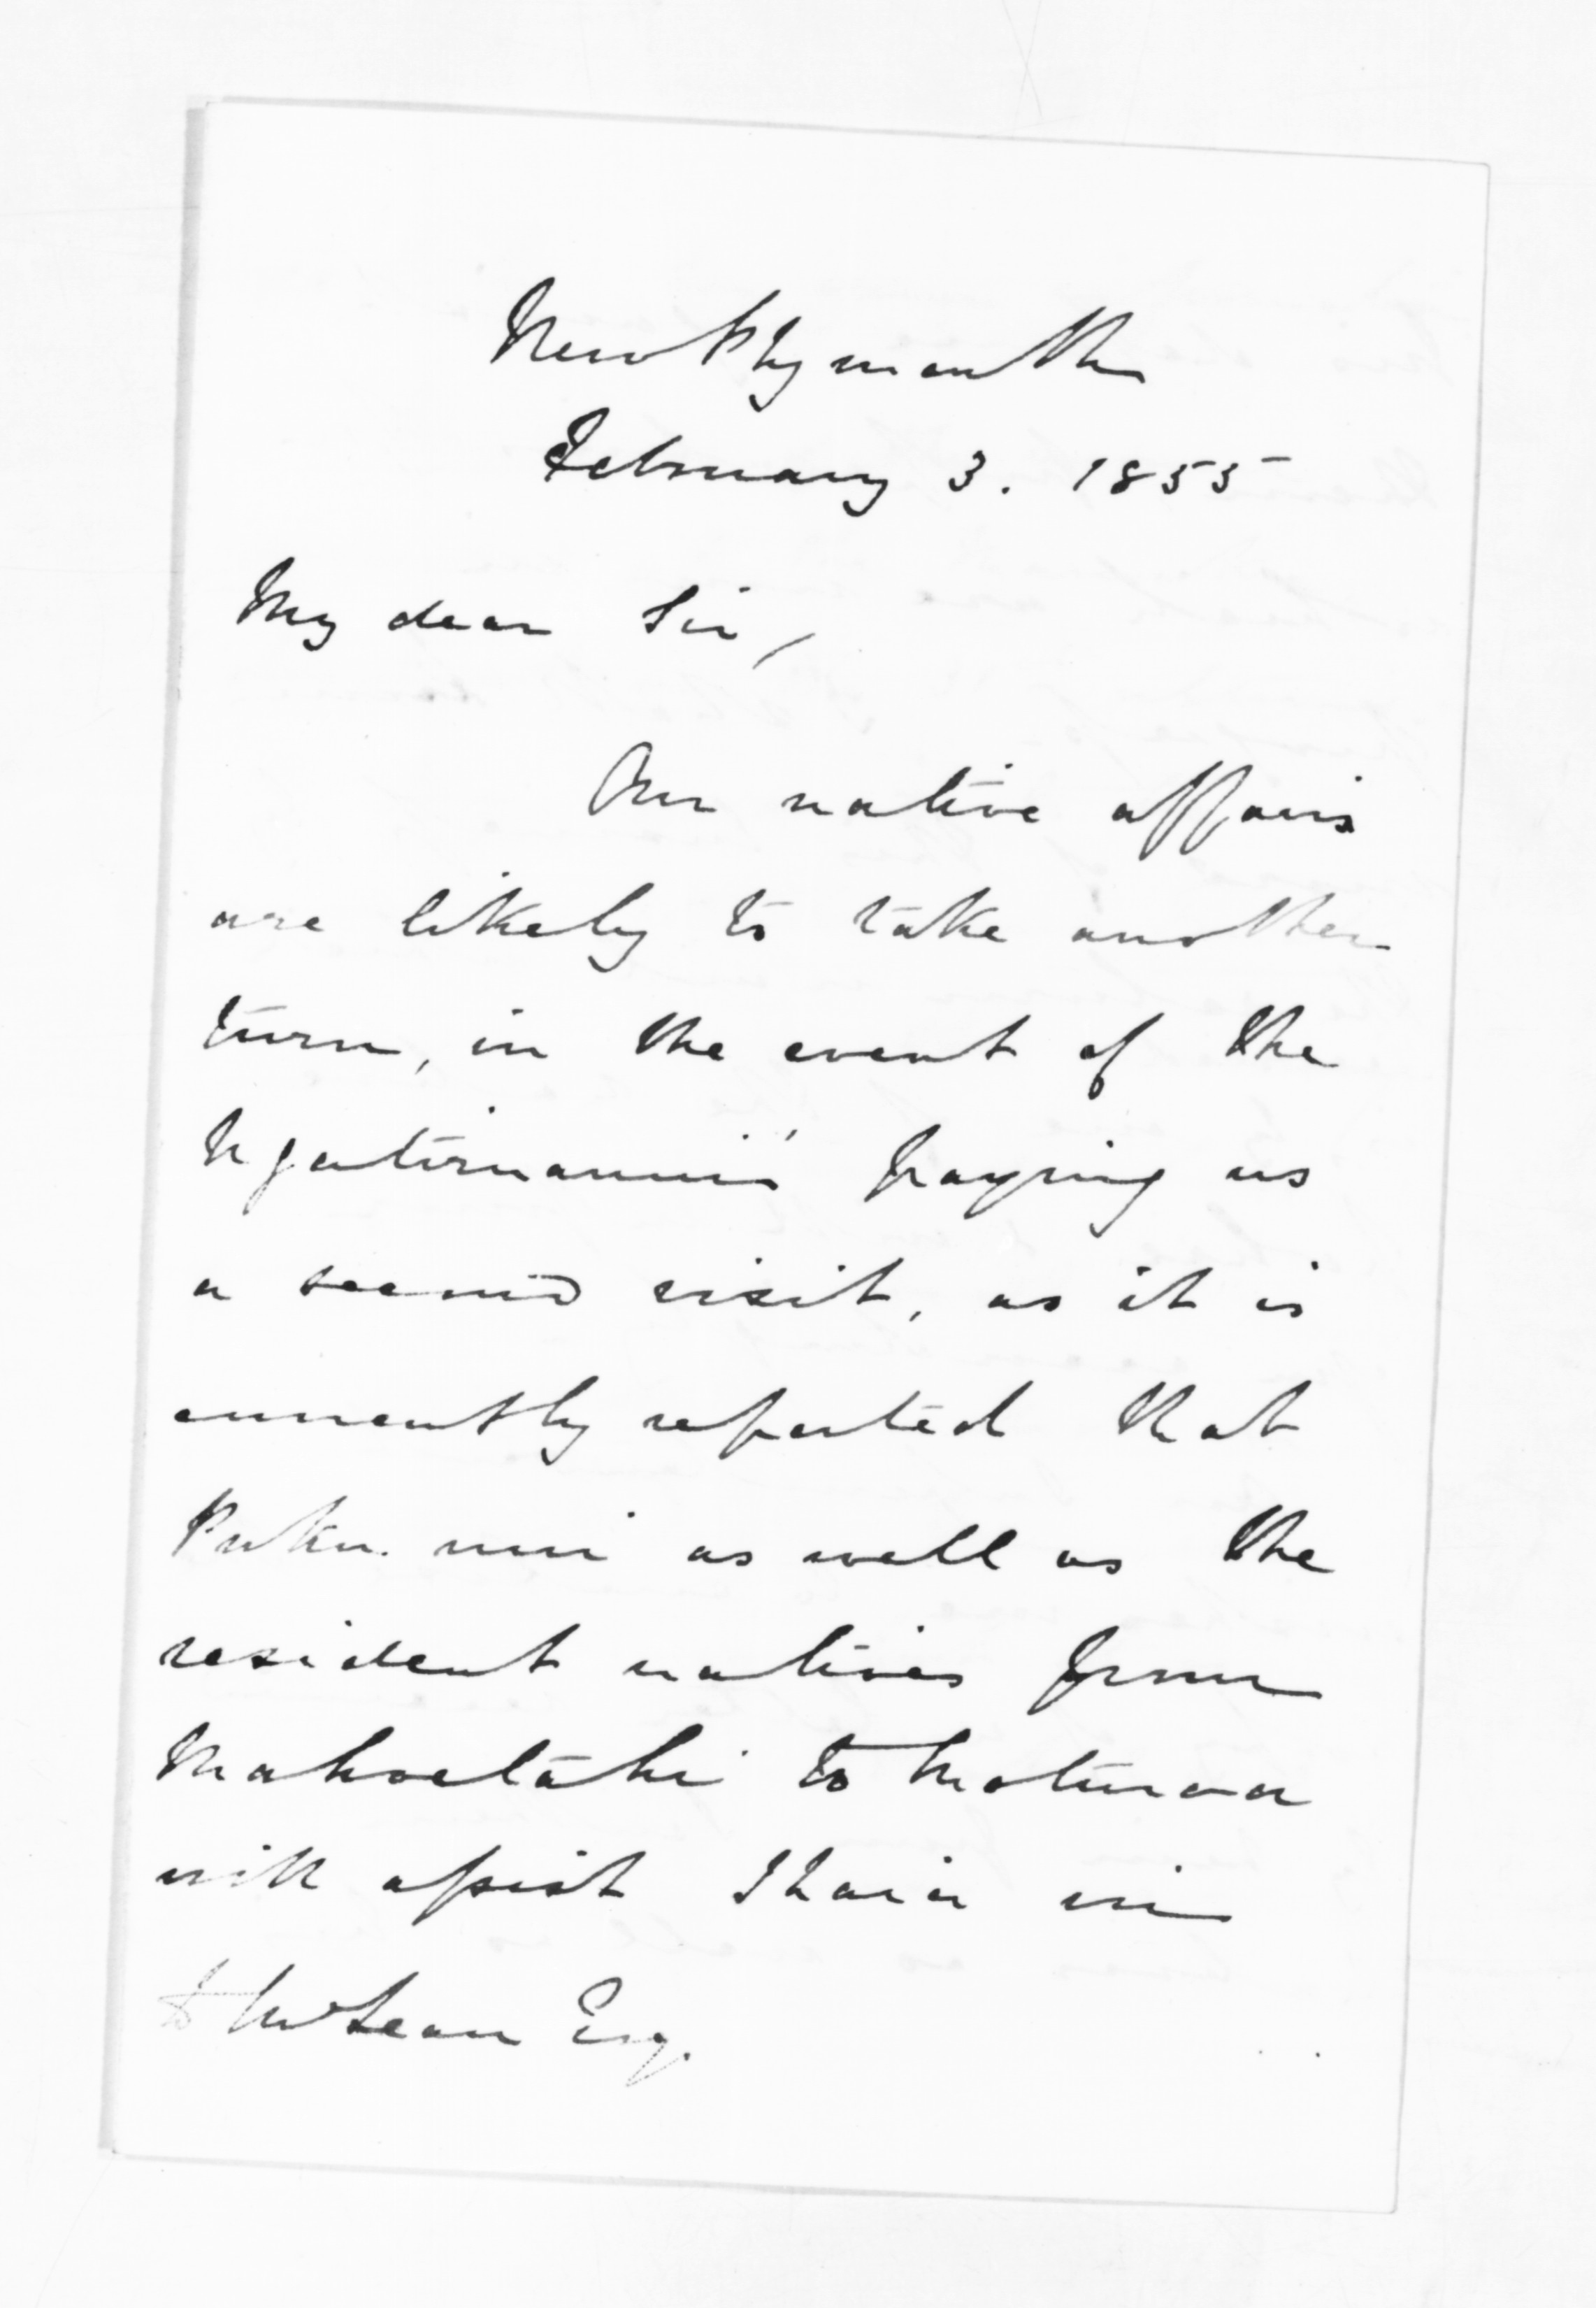 New Plymouth
February 3. 1855
My dear Sir,
Our native affairs
are likely to take another
turn, in the event of the
Ngatiruanui's paying us
a second visit, as it is
currently reported that
as well as the
resident natives from
Mahoetahi to Waitara
will assist Ihaia in
McLean Esq.